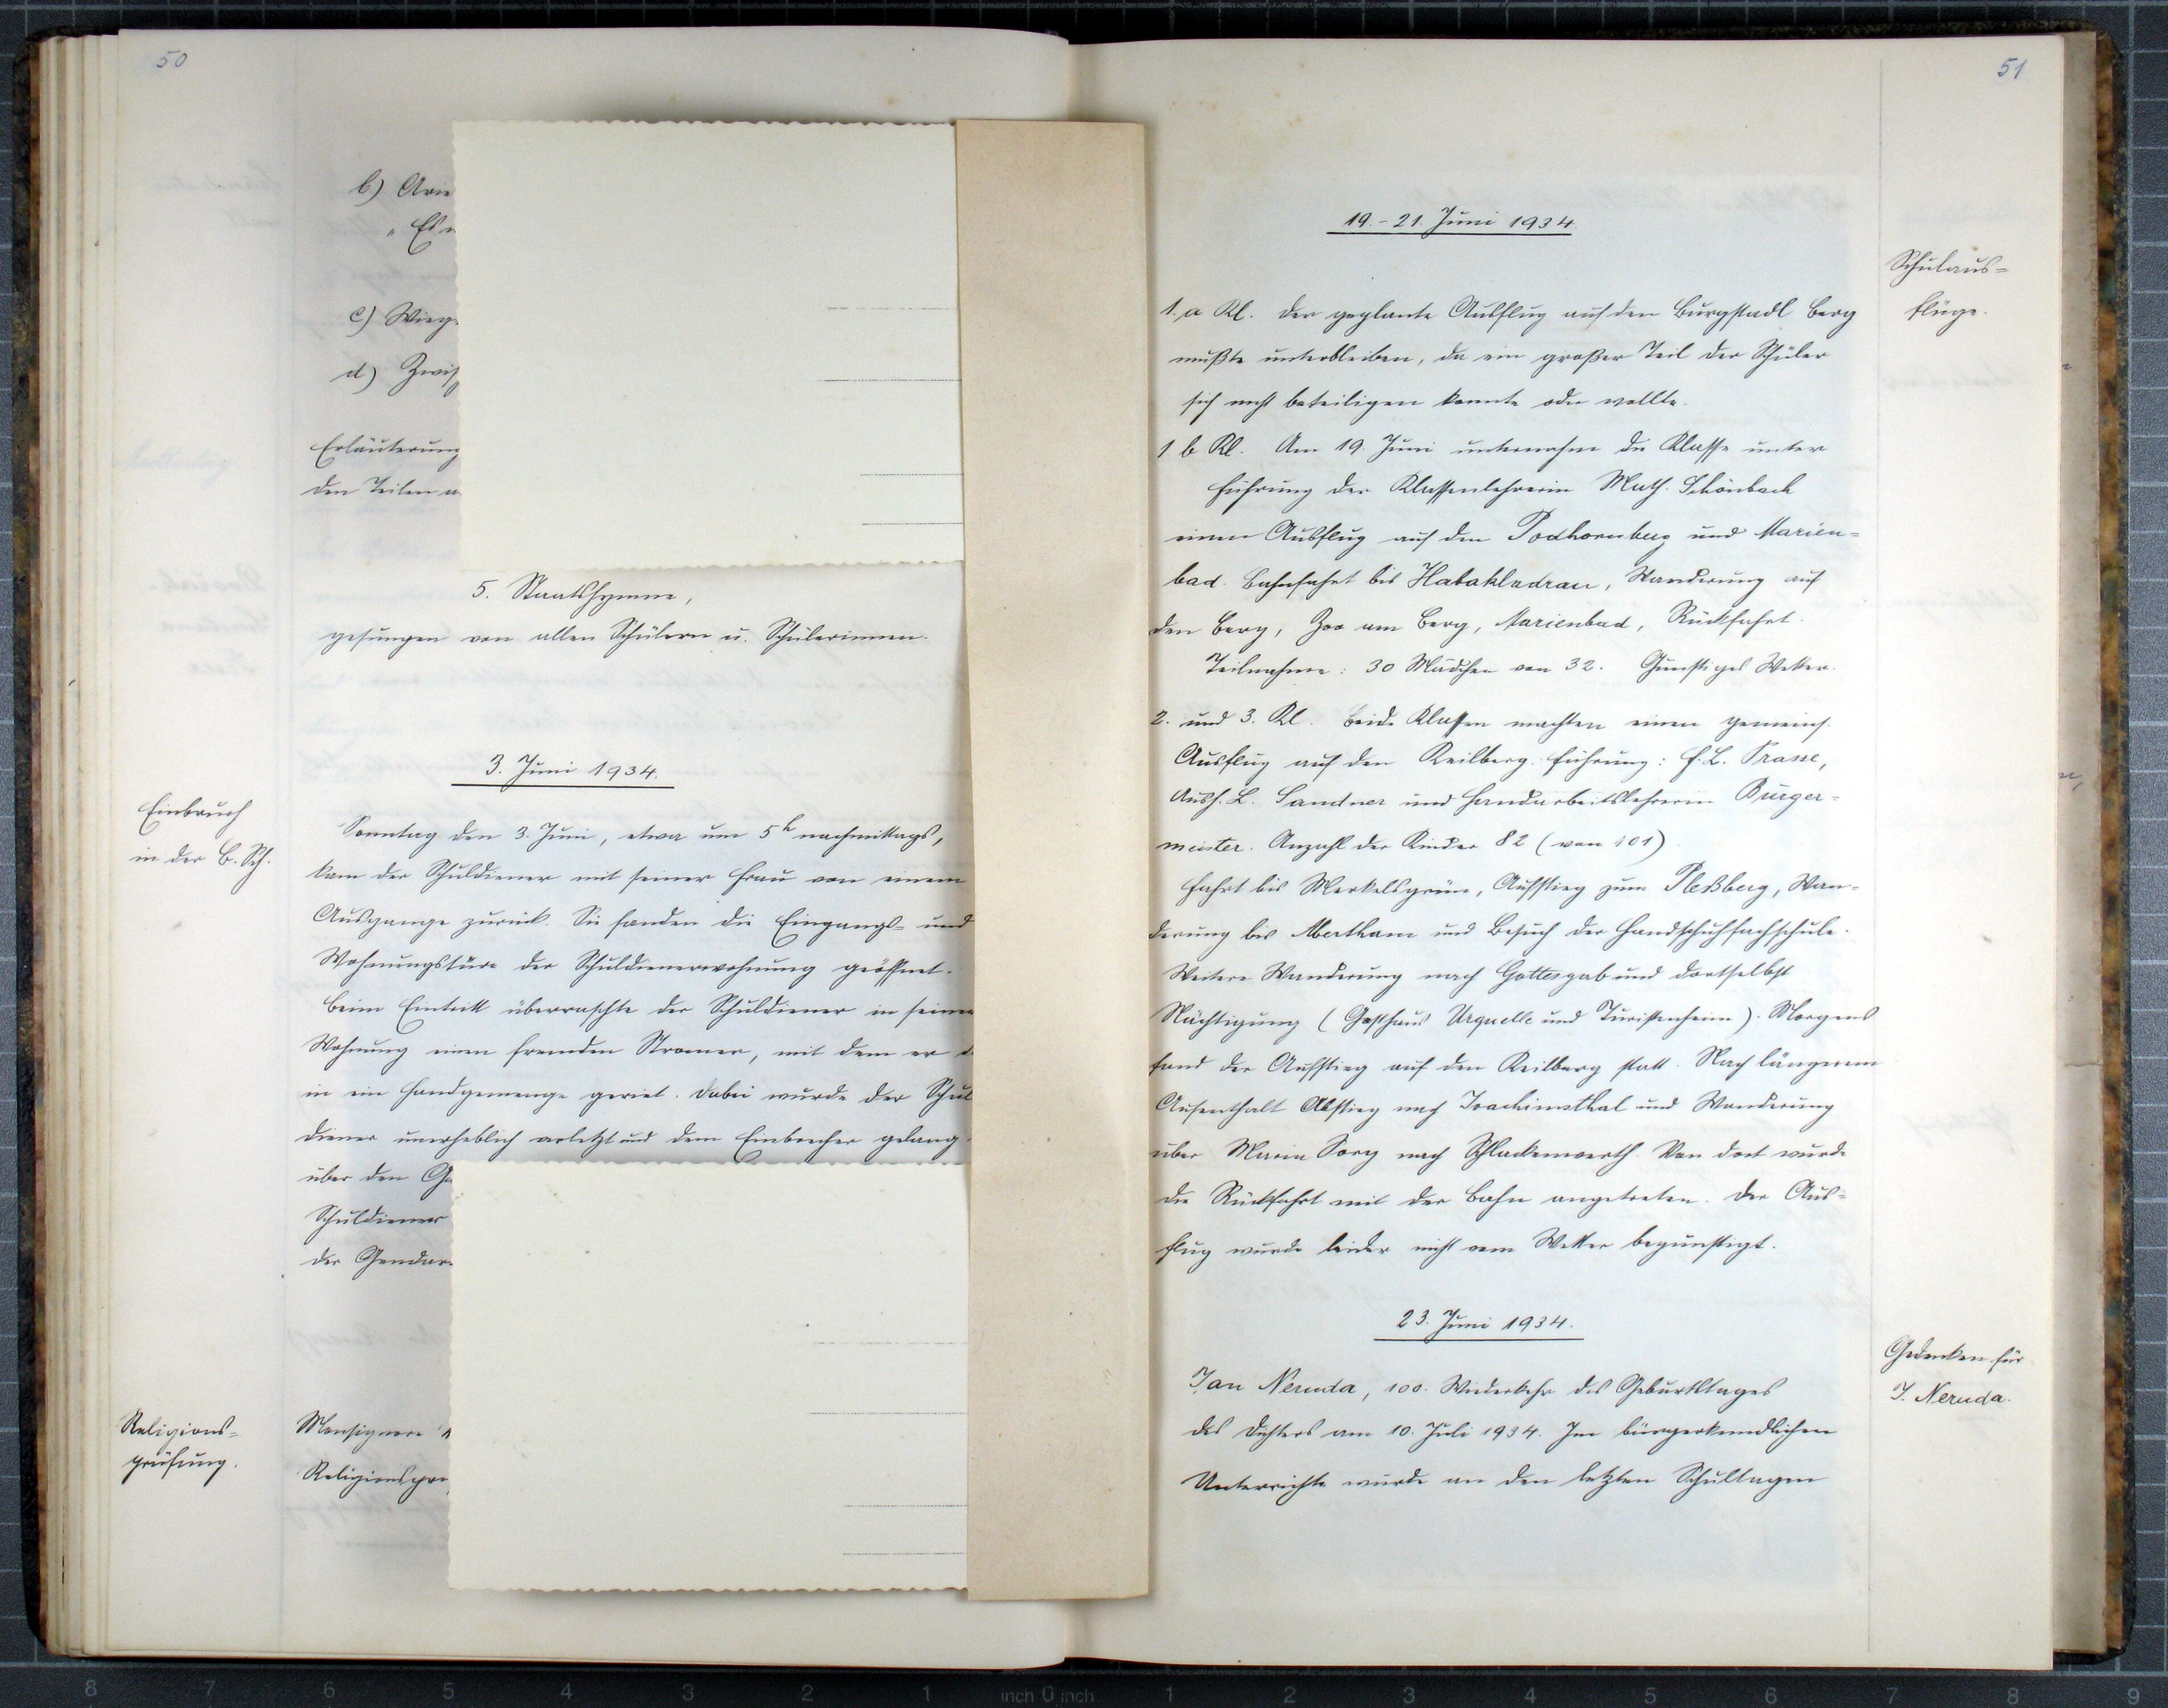 50
b) Arie
„Es
c) Wieg
d) Zwis
Erläuterung
den Teilen
5. Staatshymne,
gesungen von allen Schülern u. Schülerinnen.
3. Juni 1934.
Einbruch
in der B. Sch.
Sonntag den 3. Juni, etwa um 5h nachmittags,
kam der Schuldiener mit seiner Frau von einem
Ausgange zurück. Sie fanden die Eingangs- und
Wohnungstüre der Schuldienerwohnung geöffnet.
Beim Eintritt überraschte der Schuldiener in seiner
Wohnung einen fremden Stromer, mit dem er
in ein Handgemenge geriet. Dabei wurde der Schul
diener unerheblich verletzt und dem Einbrecher gelang
über den
Schuldiener
der Gendar
Religions-
prüfung.
Monsignore
Religionsprü
51
19.-21. Juni 1934.
Schulaus-
flüge.
1. a Kl. Der geplante Ausflug auf den Burgstadl Berg
mußte unterbleiben, da ein großer Teil der Schüler
sich nicht beteiligen konnte oder wollte.
1 b Kl. Am 19. Juni unternahm die Klasse unter
Führung der Klassenlehrerin Math. Schönbach
einen Ausflug auf den Podhornberg und Marien-
bad. Bahnfahrt bis Habakladrau, Wanderung auf
den Berg, Zoo am Berg, Marienbad, Rückfahrt.
Teilnahme: 30 Mädchen von 32. Günstiges Wetter.
2. und 3. Kl. Beide Klassen machten einen gemeins.
Ausflug auf den Keilberg. Führung: F. L. Prasse,
Aush. L. Sandner und Handarbeitslehrerin Bürger-
meister. Anzahl der Kinder 82 (von 101)
Fahrt bis Merkelsgrün, Aufstieg zum Pleßberg, Wan-
derung bis Abertham und Besuch der Handschuhfachschule.
Weitere Wanderung nach Gottesgab und dortselbst
Nächtigung (Gasthaus Urquelle und Turistenheim). Morgens
fand der Aufstieg auf den Keilberg statt. Nach längerem
Aufenthalt Abstieg nach Joachimsthal und Wanderung
über Maria Sorg nach Schlackenwerth. Von dort wurde
die Rückfahrt mit der Bahn angetreten. Der Aus-
flug wurde leider nicht vom Wetter begünstigt.
23. Juni 1934.
Gedenken für
J. Neruda.
Jan Neruda, 100. Wiederkehr des Geburtstages
des Dichters am 10. Juli 1934. Im bürgerkundlichen
Unterrichte wurde an den letzten Schultagen